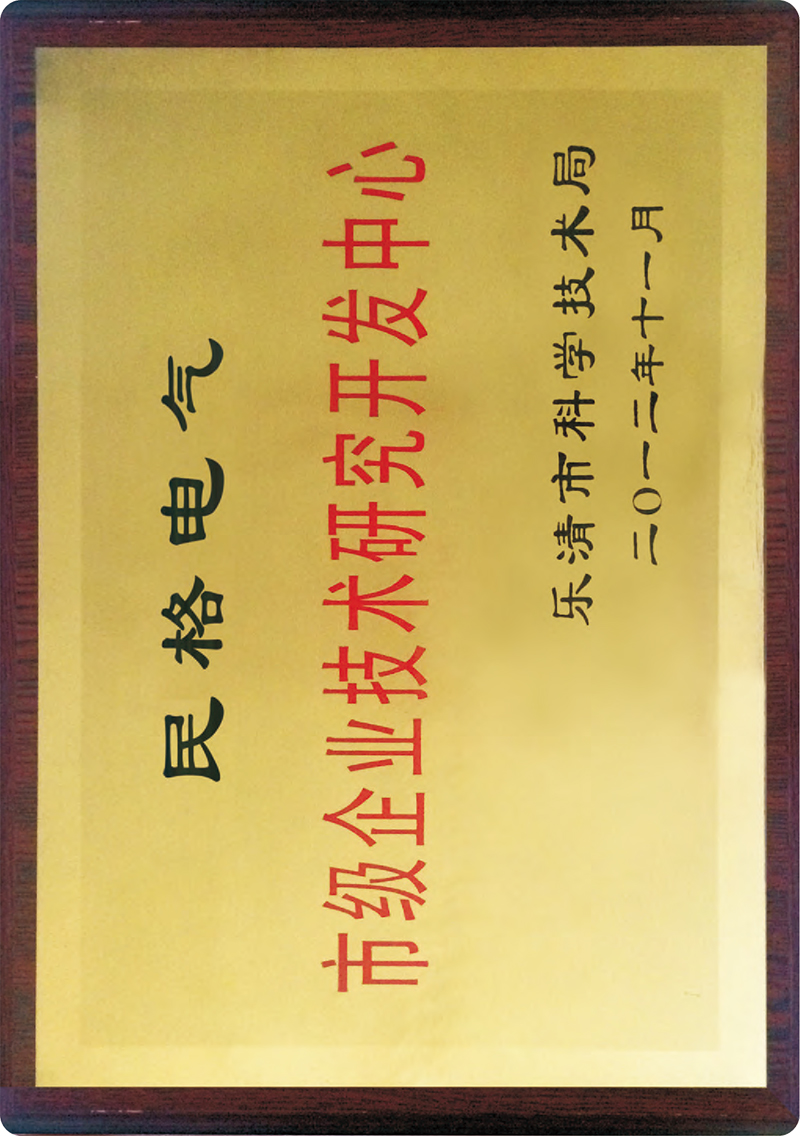 民格电气
市级企业技术研究开发中心
乐清市科学技术局
二〇一二年十一月